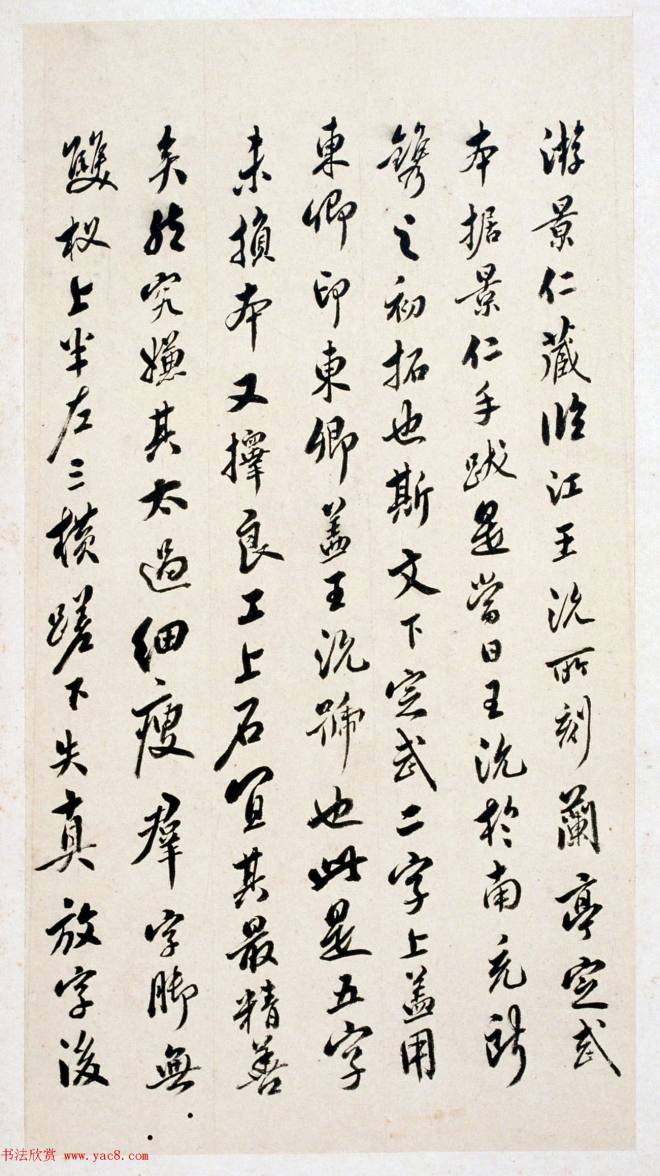 游景仁藏臨江王沇所刻蘭亭定武
本据景仁手跋是當日王沇於南充所
鐫之初拓也斯文下定武二字上盖用
東卿印東卿盖王沇號也此是五字
未損本又擇良工上石宜其最精善
矣然究嫌其太過细瘦羣字脚無
雙杈上半左三横蹉下失真放字後
书法欣赏 www.yac8.com